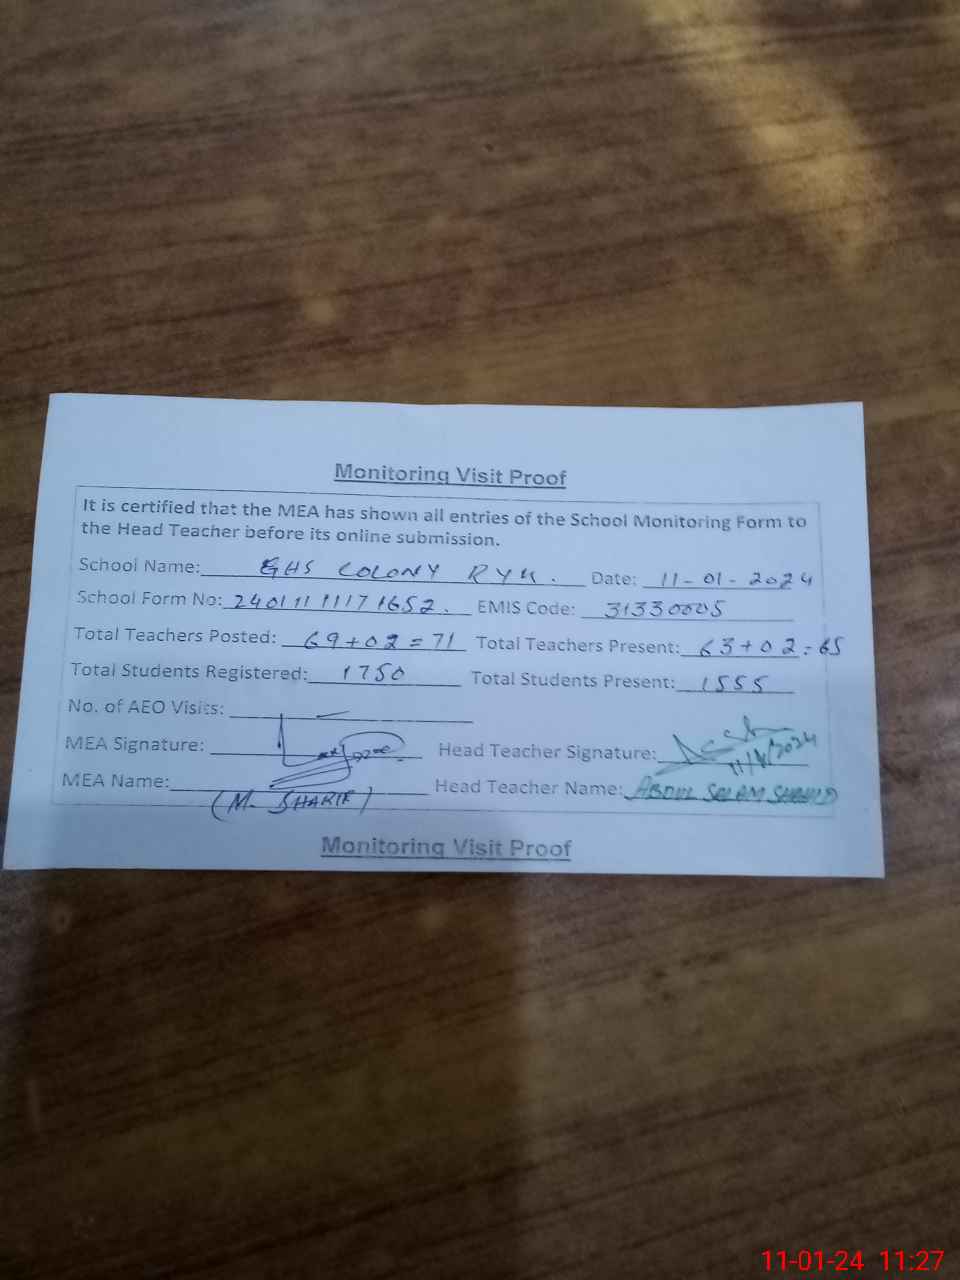 Monitoring Visit Proof
It is certified that the MEA has shown all entries of the School Monitoring Form to
the Head Teacher before its online submission.
School Name: GHS COLONY RYK. Date: 11-01-2024
School Form No: EMIS Code: 31330005
Total Teachers Posted: 69+02=71 Total Teachers Present: 63+02=65
Total Students Registered: 1750 Total Students Present: 1555
No. of AEO Visits: —
MEA Signature: Head Teacher Signature:
MEA Name: (M. SHARIF) Head Teacher Name: ABDUL SALAM
Monitoring Visit Proof
11-01-24 11:27